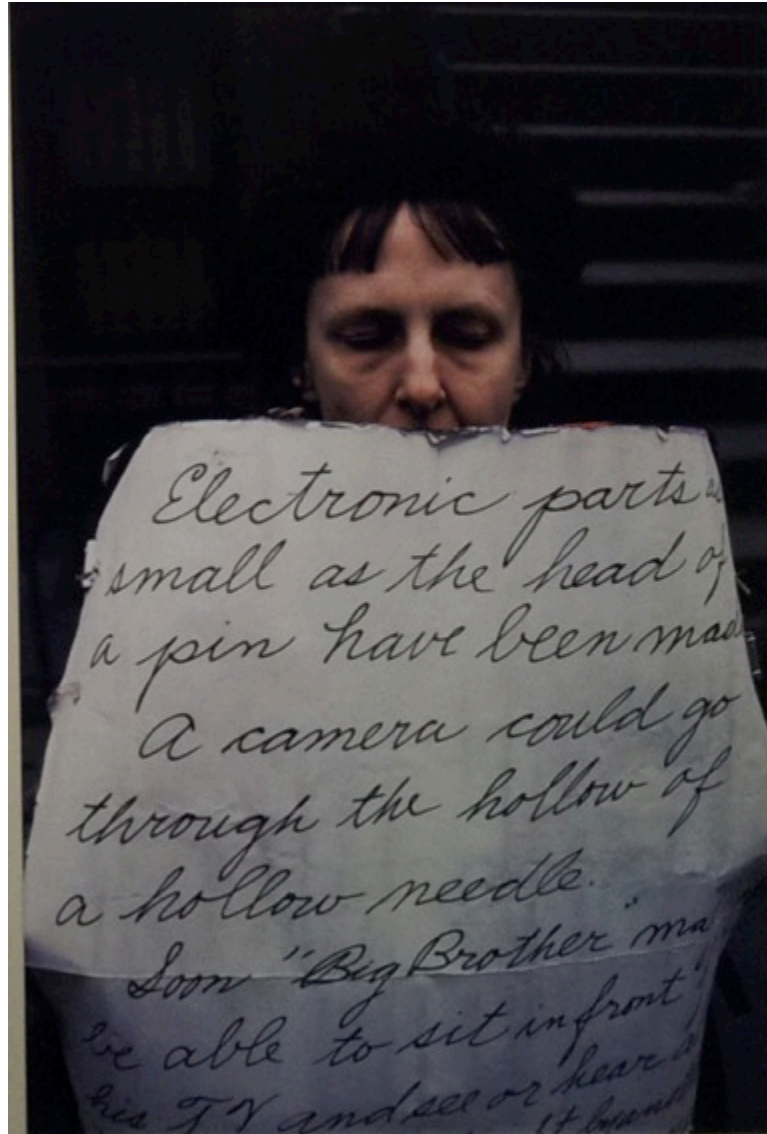 Electronic parts as
small as the head of
a pin have been mad
A camera could go
through the hollow of
a hollow needle.
Soon "Big Brother" ma
be able to sit in front
his TV and see or hear